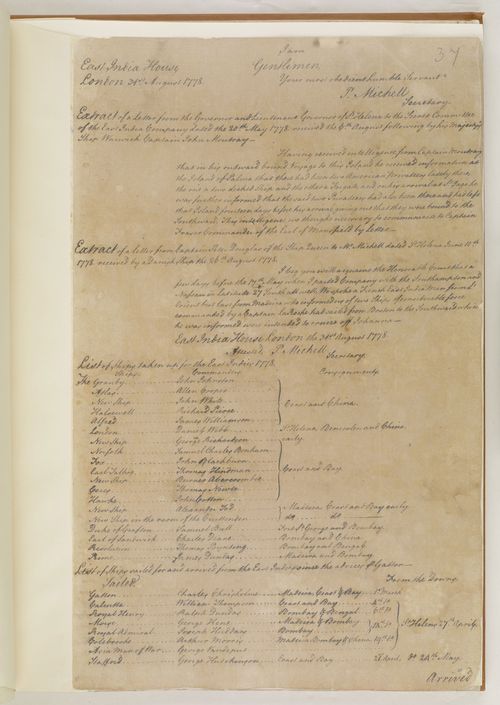 37
I am
East India House Gentlemen
London 31st August 1778. Your most obedient humble Servant
P. Michell
Secretary.
Extract of a Letter from the Governor and Lieutenant Governor of St Helena to the Secret Committee
of the East India Company dated the 20th May 1778 received the 6th August following by his Majesty's
Ship Warwick Captain John
Having received intelligence from Captain
that in his outward bound Voyage to this Island he received information at
the Island of Palma that there had been two American Privateers lately there
the one a two decked Ship and the other a Frigate and on his arrival at St Iago he
was further informed that the said two Privateers had also been there and had left
that Island fourteen days before his arrival giving out that they were bound to the
Southward. This intelligence we thought necessary to communicate to Captain
Fraser Commander of the Earl of Mansfield by Letter
Extract of a Letter from Captain Peter Douglas of the Ship Queen to Mr Michell dated St Helena June 11th
1778 received by a Danish Ship the 26th August 1778.
I beg you will acquaine the Honorable Court that a
few days before the 17th May when I parted Company with the Southampton and
Nassau in Latitude 27 South
Orient but last from Madeira who informed me of two Ships of considerable force
commanded by a Captain had sailed from Boston to the Southward which
he was informed were intended to cruize off Johanna
East India House London the 31st August 1778
Attested, P. Michell
Secretary
List of Ships taken up for the East Indies 1778.
Ships Commanders Consignments.
The Granby John Johnston
Atlas Allen Cooper
New Ship John White
Halsewell Richard Pierce Coast and China.
Alfred James Williamson
London Daniel Webb St Helena Bencoolen and China
New Ship George Richardson early.
Norfolk Samuel Charles Bonham
Fox John Blackburn
Earl Talbot Thomas Hindman Coast and Bay
New Ship Burnet Abercrombie
Ceres Thomas Newte
Hawke John Cotton
New Ship Alexander Tod Madeira Coast and Bay early
New Ship in the room of the Chatterden do do
Duke of Grafton Samuel Bull Fort St George and Bombay.
Earl of Sandwich Charles Deane Bombay and China
Resolution Thomas Poynting Bombay and Bengal
Rumi Dunlop Madeira and Bombay
List of Ships sailed for and arrived from the East Indies since the advices Gatton
Sailed From the Downs
Gatton Charles Chisholme Madeira Coast & Bay 1st March
Calcutta William Thompson Coast and Bay
Royal Henry Ralph Dundas Bombay & Bengal
Mount George Kent Madeira & Bombay
Royal Admiral Joseph Huddart Bombay St Helena 27th April
Colebrooke Arthur Morris Madeira Bombay & China
Asia Man of War George Vandeput
Stafford George Hutchinson Coast and Bay do 24th May
Arrived